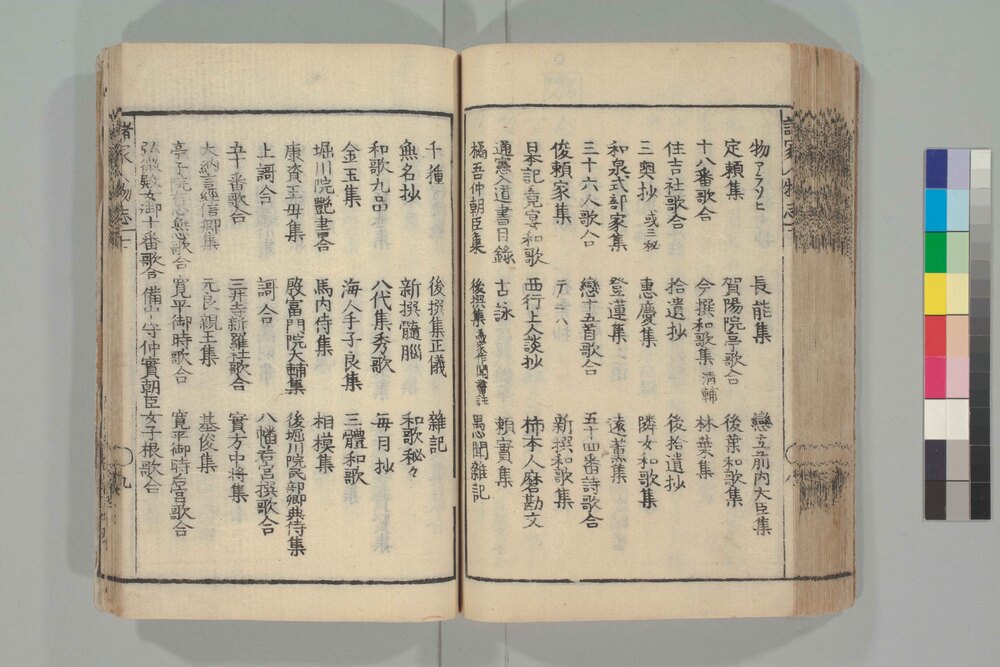 物アラソヒ 長能集 戀 前内大臣集
定頼集 賀陽院亭歌合 後葉和歌集
十八番歌合 今撰和歌集 清輔 林葉集
住吉社歌合 拾遺抄 後拾遺抄
三奥抄 或三秘 惠慶集 隣女和歌集
和泉式部家集 登蓮集 遠董集
三十六人歌合 戀十五首歌合 五十四番詩歌合
俊頼家集 新撰和歌集
日本記竟宴和歌 西行上人談抄 柿本人麿勘文
通憲入道書目錄 古詠 賴實集
橘吾仲朝臣集 後撰集 愚聞雜記
千種 後撰集正儀 雜記
無名抄 新撰髓腦 和歌秘々
和歌九品 八代集秀歌 毎日抄
金玉集 海人手子良集 三體和歌
堀川院艷書合 馬内侍集 相模集
康資王母集 殷富門院大輔集 後堀川院民部卿典侍集
上謌合 謌合 八幡若宮撰歌合
五十番歌合 三井寺新羅社歌合 實方中将集
大納言經信卿集 元良親王集 基俊集
亭子院有心無 歌合 寛平御時歌合 寛平御時后宮歌合
弘徽殿女御十番歌合 備中守仲實朝臣女子根歌合
諸家人物志 九